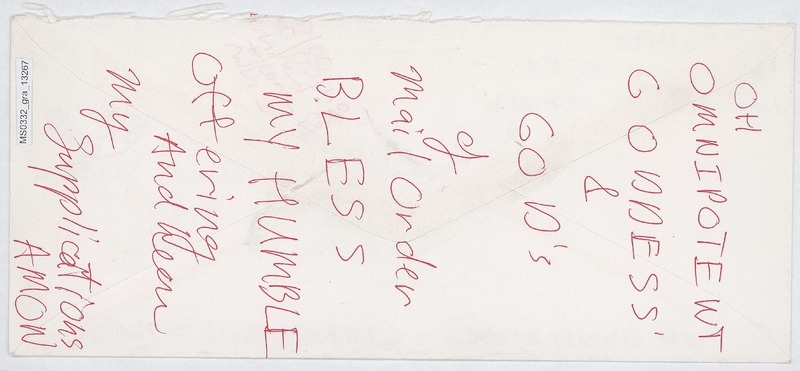 OH
OMNIPOTENT
GODDESS'
&
GOD's
of
Mail Order
BLESS
my HUMBLE
Offering
And Hear
my
Supplications
AMON
MS0332_gra_13267